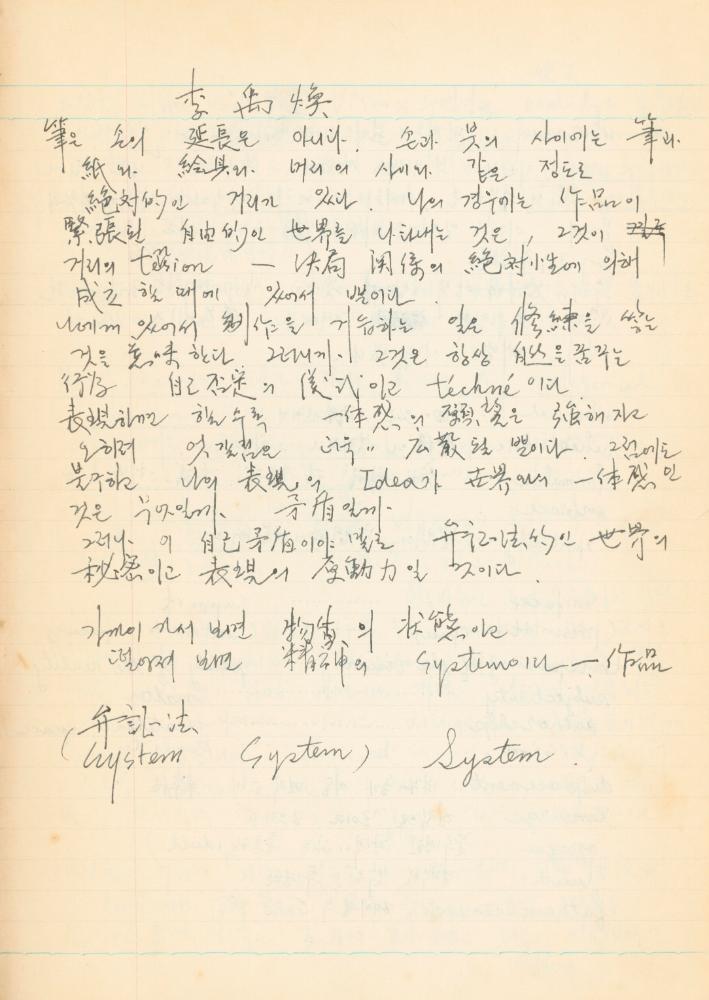 李 禹 煥
筆은 손의 延長은 아니다. 손과 붓의 사이에는 筆과
紙와 絵具와 머리의 사이와 같은 정도로
絶対的인 거리가 있다. 나의 경우에는 作品이
緊張된 自由的인 世界를 나타내는 것은, 그것이
거리의 tension — 決局 関係의 絶対小性에 의해
成立할 때에 있어서 뿐이다.
나에게 있어서 制作을 거듭하는 일은 修練을 쌓는
것을 意味한다. 그러니까, 그것은 항상 自然을 꿈꾸는
自己否定의 儀式이고 téchné이다.
表現하면 할수록 一体感의 顕望은 強해지고
오히려 엇갈림은 더욱 広散될 뿐이다. 그럼에도
불구하고 나의 表現의 Idea가 世界와의 一体感인
것은 무엇일까. 矛盾일까.
그러나 이 自己矛盾이야 말로 弁証法的인 世界의
秘密이고 表現의 原動力일 것이다.
가까이 가서 보면 物質의 状態이고
떨어져 보면 精神의 System이다 — 作品
弁証法
(System System) System.